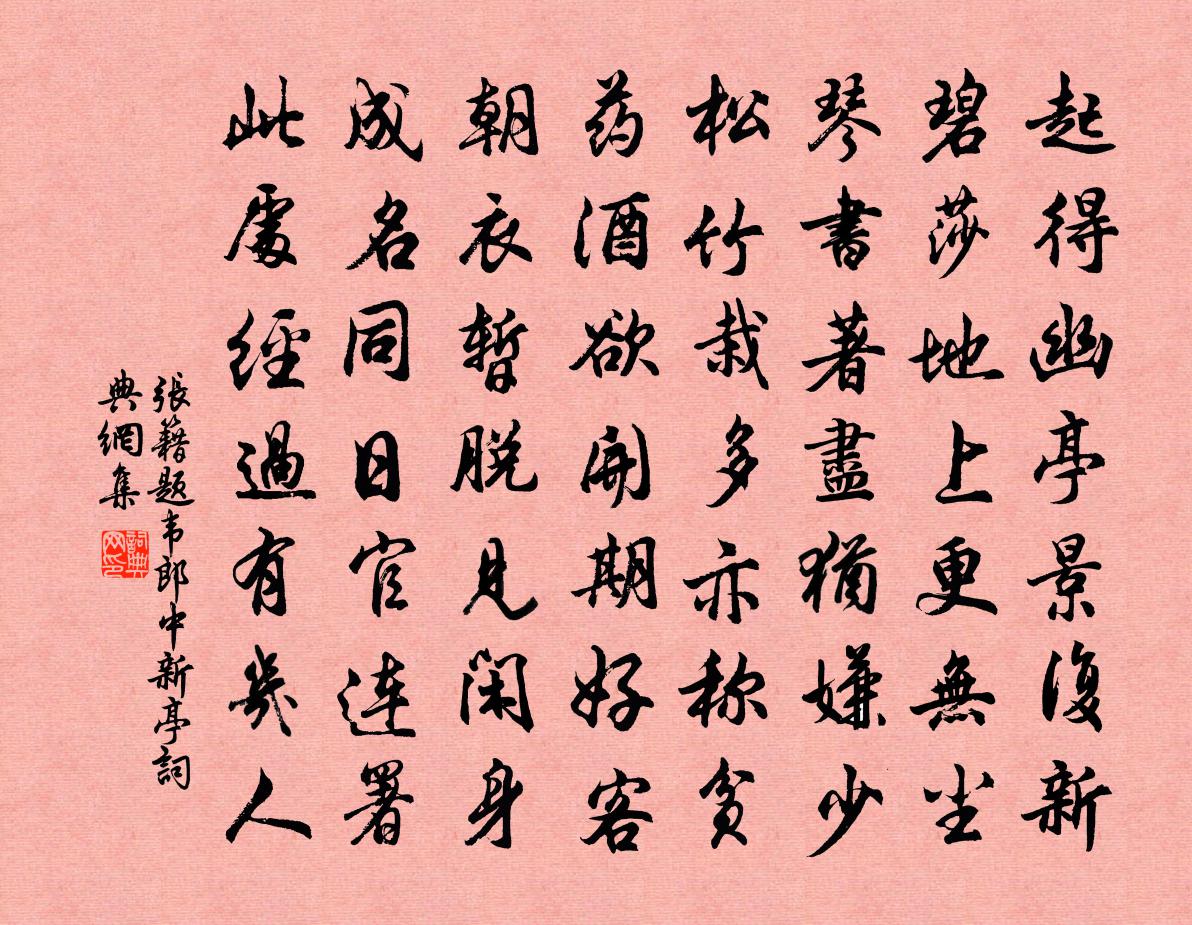 起得幽亭景復新
碧莎地上更無尘
琴書著盡猶嫌少
松竹栽多亦称貧
药酒欲開期好客
朝衣暫脱見閑身
成名同日官連署
此處經過有幾人
張籍题韦郎中新亭詞
典網集
詞典网印